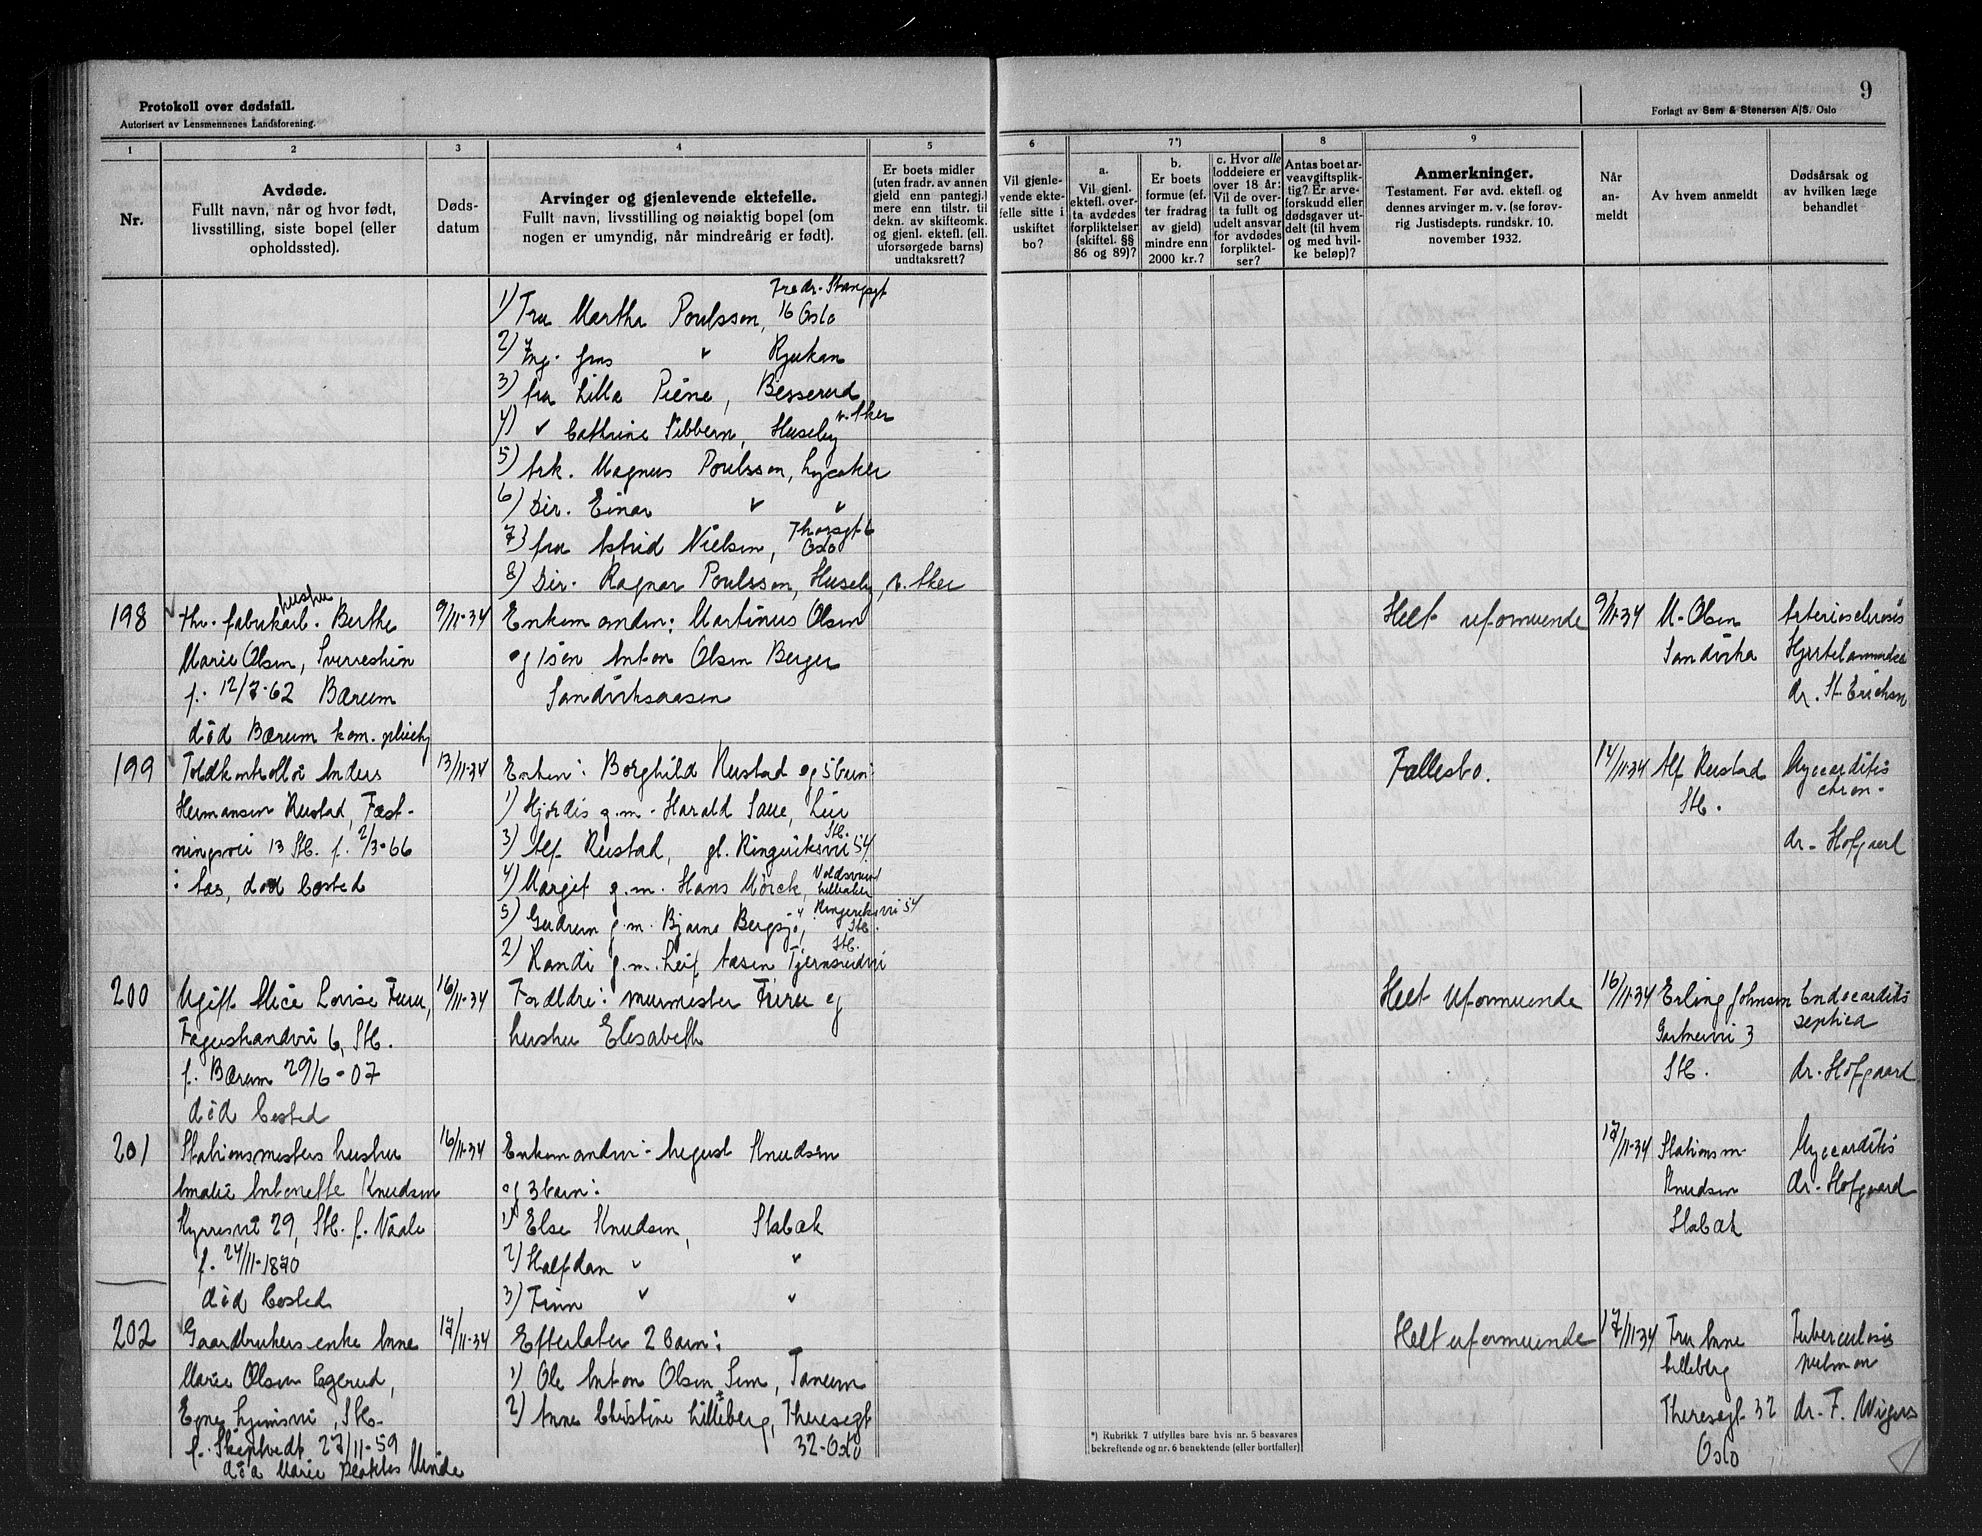 Protokoll over dødsfall.
Autorisert av Lensmennenes Landsforening.
9
Forlagt av Sem & Stenersen A/S. Oslo
1
Nr.
2
Avdøde.
Fullt navn, når og hvor født,
livsstilling, siste bopel (eller
opholdssted).
3
Døds-
datum
4
Arvinger og gjenlevende ektefelle.
Fullt navn, livsstilling og nøiaktig bopel (om
nogen er umyndig, når mindreårig er født).
5
Er boets midler
(uten fradr. av annen
gjeld enn pantegj.)
mere enn tilstr. til
dekn. av skifteomk.
og gjenl. ektefl. (ell.
uforsørgede barns)
undtaksrett?
6
Vil gjenle-
vende ekte-
felle sitte i
uskiftet
bo?
7*)
a.
Vil gjenl.
ektefl. over-
ta avdødes
forpliktelser
(skiftel. §§
86 og 89)?
b.
Er boets
formue (ef-
ter fradrag
av gjeld)
mindre enn
2000 kr.?
c. Hvor alle
loddeiere er
over 18 år:
Vil de over-
ta fullt og
udelt ansvar
for avdødes
forpliktel-
ser?
8
Antas boet ar-
veavgiftsplik-
tig? Er arve-
forskudd eller
dødsgaver ut-
delt (til hvem
og med hvil-
ke beløp)?
9
Anmerkninger.
Testament. Før avd. ektefl. og
dennes arvinger m. v. (se forøv-
rig Justisdepts. rundskr. 10.
november 1932.
Når
an-
meldt
Av hvem anmeldt
Dødsårsak og
av hvilken læge
behandlet
Fredr. Stangsgt
1) Fru Martha Poulsson, 16 Oslo
2) Ing. Jens " Rjukan
3) fru Lilla Piene, Besserud
4) " Cathrine Sibbern, Huseby v. Aker
5) Ark. Magnus Poulsson, Lysaker
6) Dir. Einar " "
7) fru Astrid Nielsen, Thorsgt 6 Oslo
8) Dir. Ragnar Poulsson, Huseby, v. Aker
198
fhv. fabrikarb. hustru Berthe
Marie Olsen,
f. 12/7-62 Bærum
død Bærum kom. pleiehj
9/11-34
Enkemanden: Martinus Olsen
og 1 søn Anton Olsen Berger
Sandviksaasen
Helt uformuende
9/11-34
M. Olsen
Sandvika
Arteriosclerosis
Hjertelammelse
dr. St. Erichsen
199
Toldkontrollør Anders
Hermansen Rustad, Fæst-
ningsvei 13 Stb. f. 2/3-66
i Aas, død bosted
13/11-34
Enken: Borghild Rustad og 5 barn:
1) Hjørdis g.m. Harald Saue, Lier
3) Alf Rustad, gl. Ringeriksvei 54 Stb.
4) Margit g.m. Hans Mörck,
5) Gudrun g.m. Bjarne Bergsjö, Ringeriksvei 54 Stb.
2) Randi g.m. Leif Aasen Tjernsrudvei Stb.
Fællesbo.
14/11-34
Alf Rustad
Stb.
Myocarditis
chron.
dr. Hofgaard
200
Ugift Alice Lovise Furu,
Fagerstrandvei 6, Stb.
f. Bærum 29/6-07
død bosted
16/11-34
Forældre: murmester Furu og
hustru Elisabeth
Helt Uformuende
16/11-34
Erling Johnsen
Gartnervei 3
Stb.
Endocarditis
septica
dr. Hofgaard
201
Stationsmesters hustru
Amalie Antonette Knudsen
Kyrresvei 29, Stb. f. Vaale
f. 24/11-1870
død bosted
16/11-34
Enkemanden: August Knudsen
og 3 barn:
1) Else Knudsen, Stabæk
2) Halfdan " "
3) Finn " "
17/11-34
Stationsm.
Knudsen
Stabæk
Myocarditis
dr. Hofgaard
202
Gaardbrukers enke Anne
Marie Olsen Egerud,
f. Skiptvedt 27/11-59
død Marie Plahtes Minde
17/11-34
Efterlater 2 barn:
1) Ole Anton Olsen Sem, Tanum
2) Anne Christine Lilleberg, Theresegt
32-Oslo
Helt uformuende
17/11-34
Fru Anne
Lilleberg
Theresegt. 32
Oslo
Tuberculosis
pulmon
dr. F. Wigers
*) Rubrikk 7 utfylles bare hvis nr. 5 besvares
bekreftende og nr. 6 benektende (eller bortfaller)